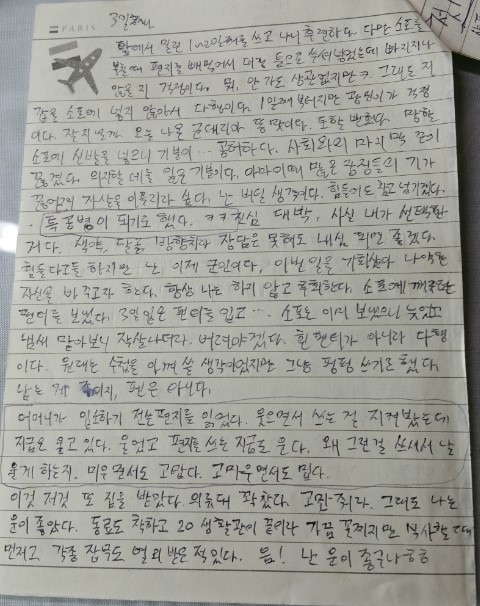 PARIS
3일차
앞에서 밀린 1~2일차를 쓰고 나니 후련하다. 다만 소포를
붙힐 때 편지를 빼먹어서 대충 틈으로 쑤셔넣었는데 빠지지나
않을 지 걱정이다. 뭐, 안 가도 상관없지만ㅋ 그래도 지
갑을 소포에 넣지 않아서 다행이다. 1일째부터지만
이다. 잘 지낼까. 오늘 나온 군대리아 똥맛이다. 또 할 만하다.
소포에 신발을 넣으니 기분이 … 공허하다. 사회와의 마지막 끈이
끊겼다. 의지할 데를 잃은 기분이다. 아마 이때 많은 장정들의 기가
꺾여 자살을 이룩리라 싶다. 난 버틸 생각이다. 힘들어도 참고 넘기겠다.
특공병이 되기로 했다. ㅋㅋ 진심 대박, 사실 내가 선택한
거다. 색약, 단골 장담은 못해도 내심 되면 좋겠다.
힘들다고들 하지만 난 이제 군인이다. 이번 일을 기회삼아 나약한
자신을 바꾸고자 한다. 항상 나는 하지 않고 후회한다. 소포에 깨끗한
팬티를 보냈다. 3일 입은 팬티를 입고 …. 소포는 이미 보냈으니 늦었고
냄새 맡아보니 작살나더라. 버려야겠다. 흰 팬티가 아니라 다행
이다. 원래는 수첩을 아껴 쓸 생각이었지만 그냥 펑펑 쓰기로 했다.
남는 게 종이지, 펜은 아니다.
어머니가 입소하기 전 쓴 편지를 읽었다. 웃으면서 쓰는 걸 지켜봤는데
지금은 울고 있다. 울었고 편지를 쓰는 지금도 운다. 왜 그런걸 쓰셔서 날
울게 하는지. 미우면서도 고맙다. 고마우면서도 밉다.
이것 저것 또 짐을 받았다. 의류대 꽉찼다. 그래도 나는
운이 좋았다. 동료도 착하고 20 생활관이 끝이라 가끔 꼴찌지만 식사할 때
먼저고, 각종 잡무도 열외 받은 적 있다. 음! 난 운이 좋구나ㅎㅎ